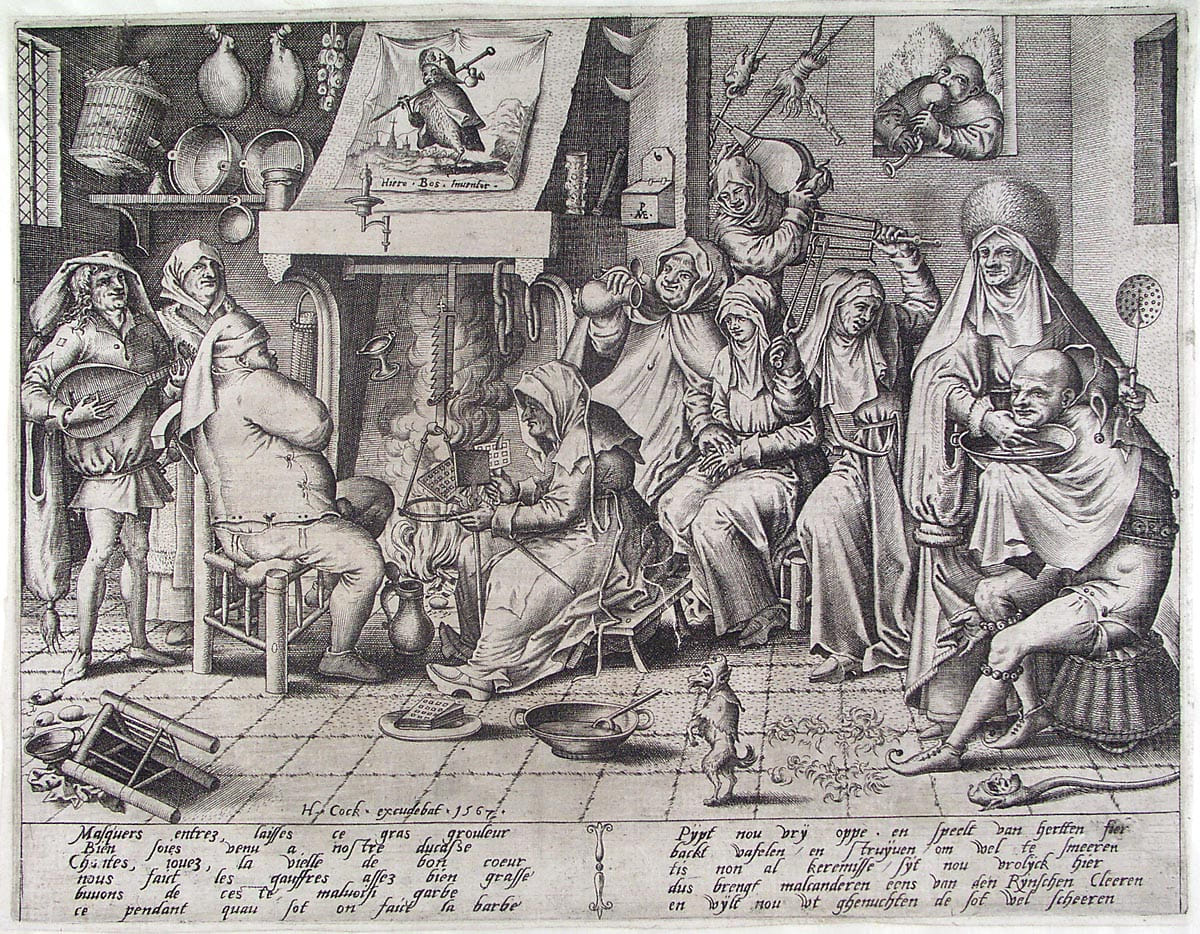 Hiero • Bos • Inventor •
PME
H • Cock • excudebat • 1567 •
Masquers entrez, laisses ce gras grouleur
Bien soies venu a nostre ducasse
Chantes, iouez, la vielle de bon coeur
nous faict les gauffres assez bien grasse
buuons de ces te maluoisi garbe
ce pendant quau sot on faict la barbe
Pÿpt nou vrÿ oppe • en speelt van hertten fier
backt vafelen en struÿuen om vel te smeeren
tis non al keremisse sÿt nou vrolÿck hier
dus brengt malcanderen eens van den Rÿnschen Cleeren
en vÿlt nou vt ghenuchten de sot vel scheeren